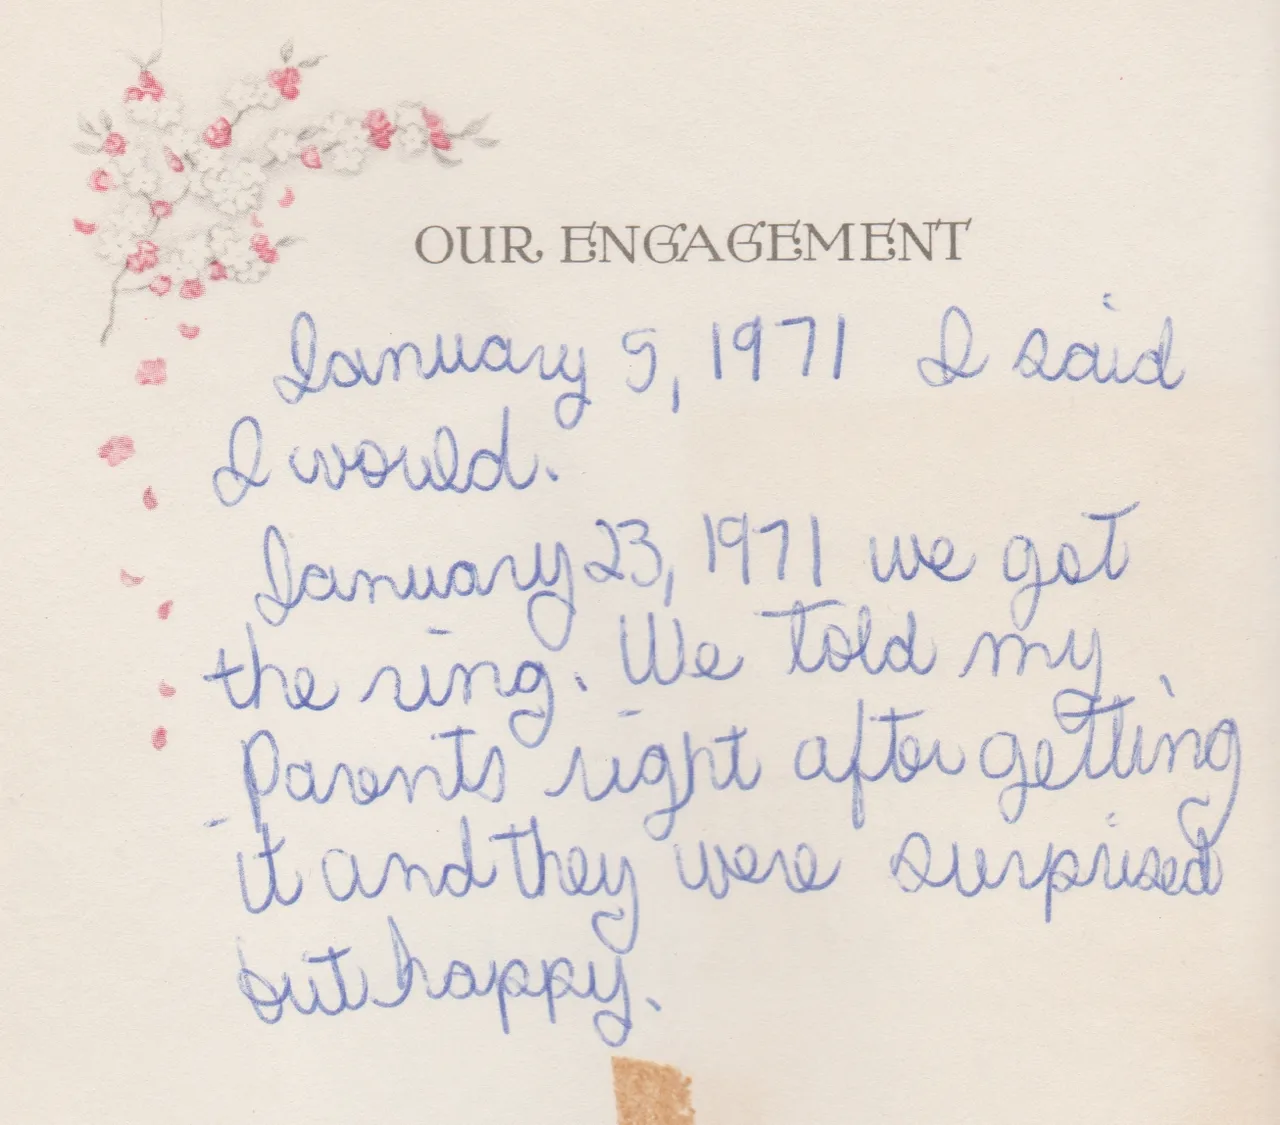 OUR ENGAGEMENT
January 5, 1971 I said
I would.
January 23, 1971 we got
the ring. We told my
Parents right after getting
it and they were surprised
but happy.